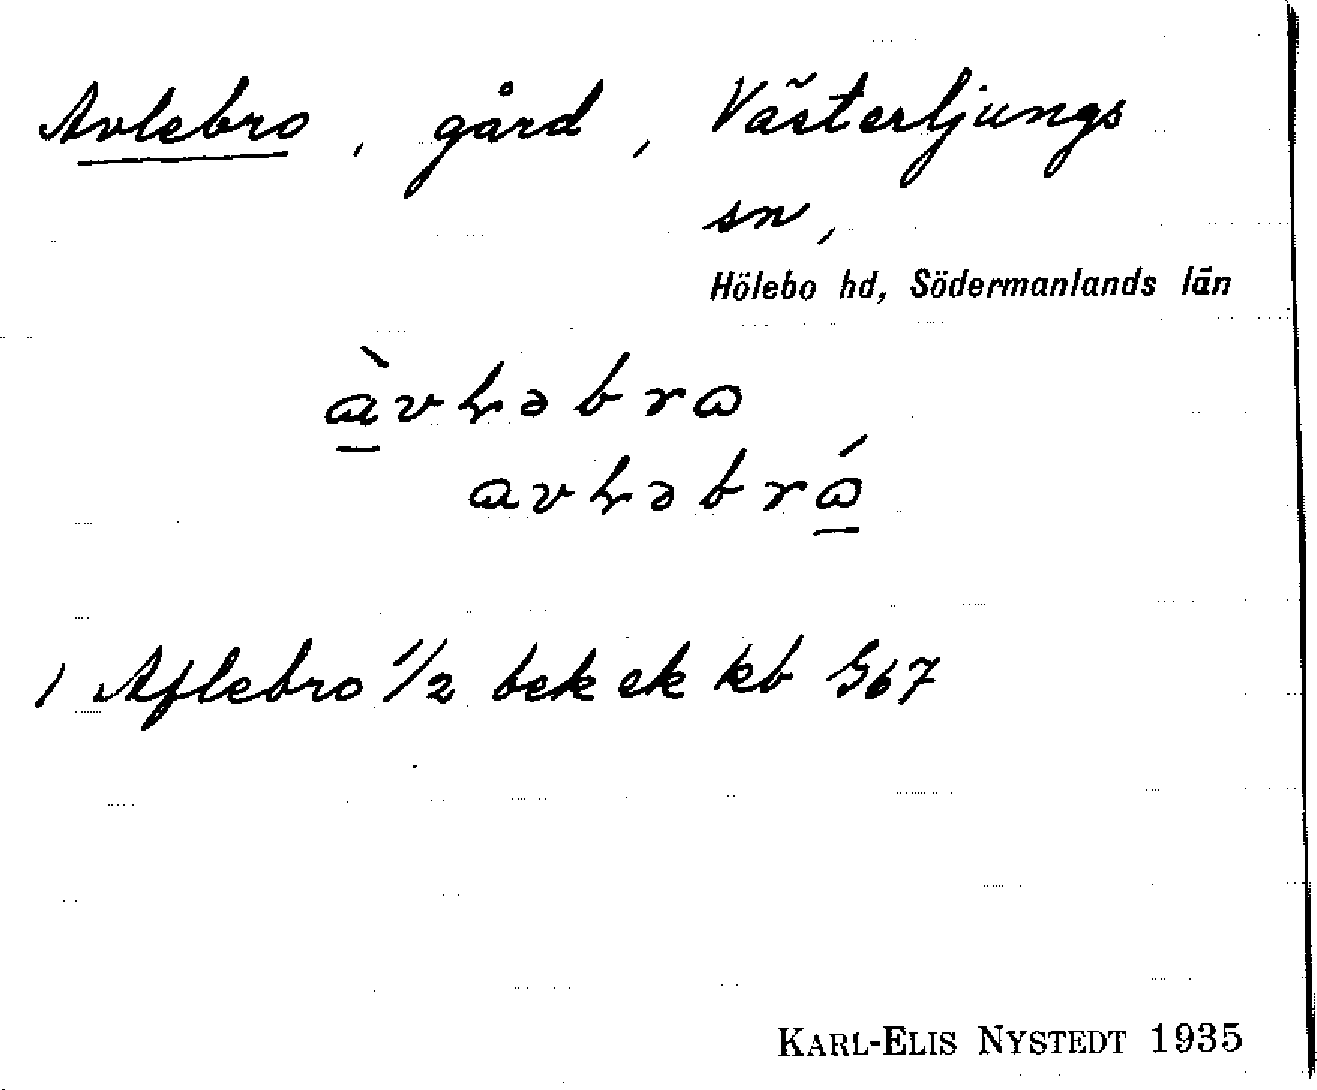 Avlebro, gård, Västerljungs
sn,
Hölebo hd, Södermanlands län
1 Aflebro 1/2 bek ek kb G67
KARL-ELIS NYSTEDT 1935